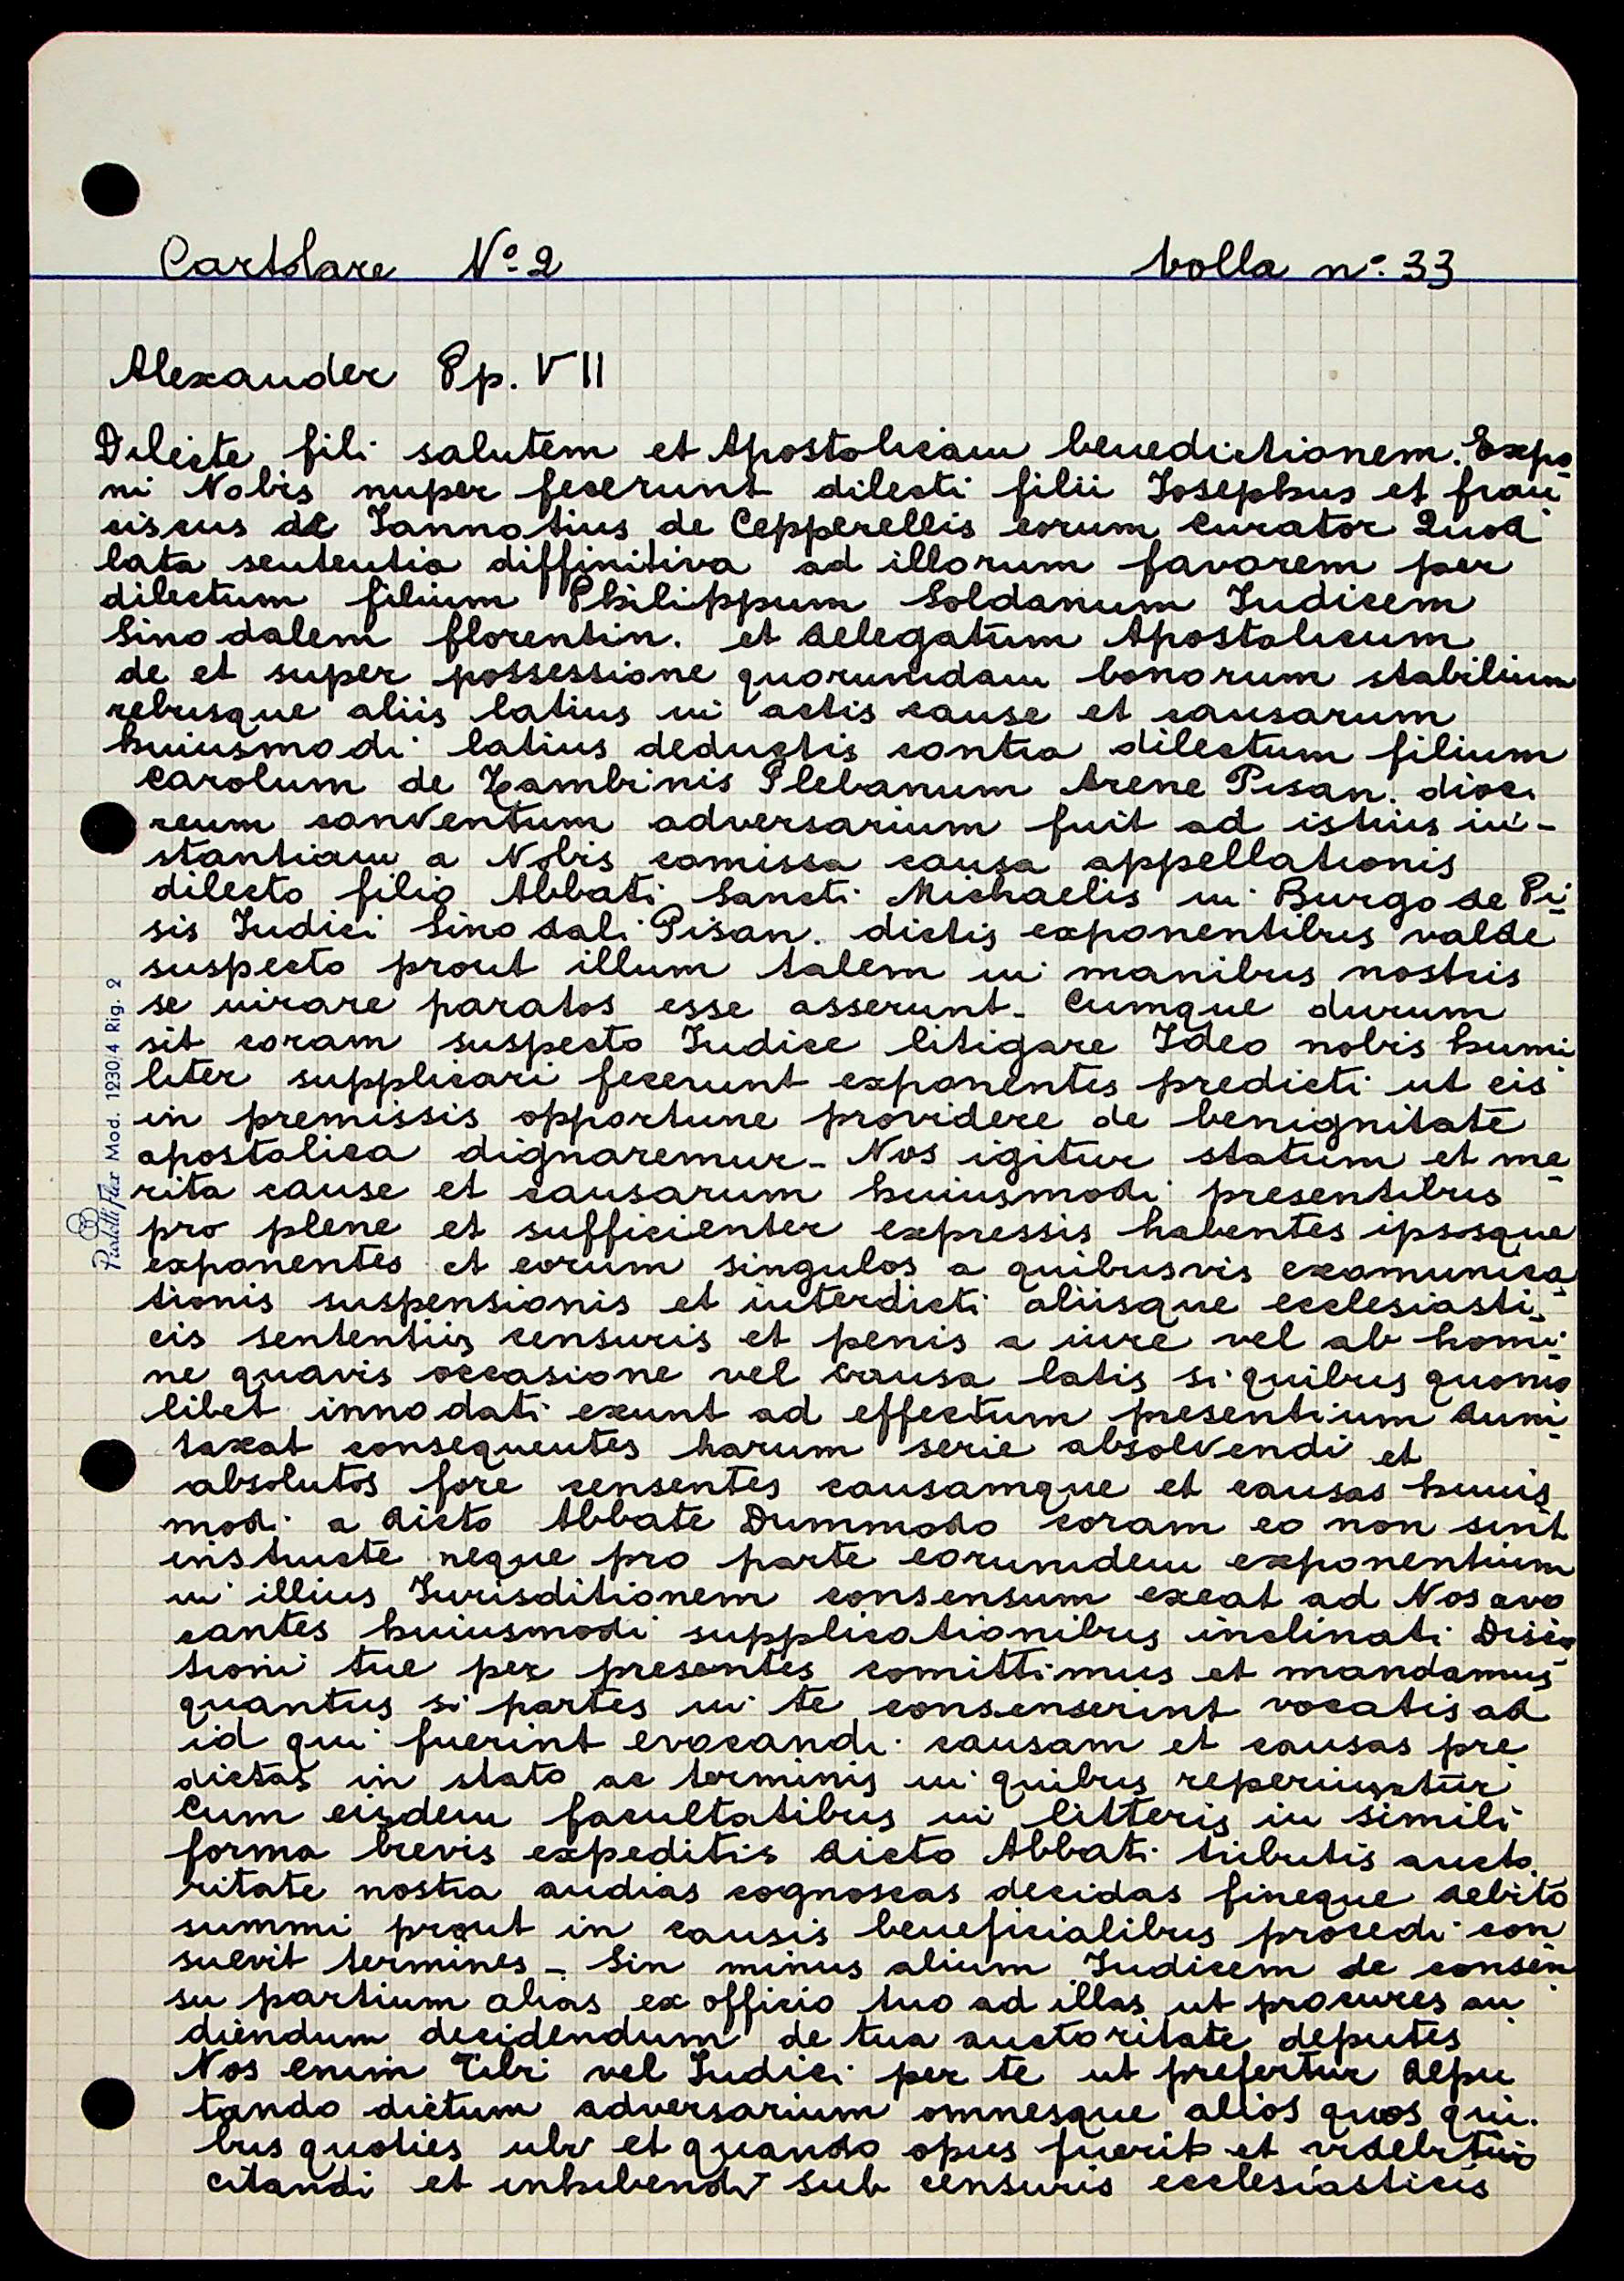 Cartolare Nº 2 bolla nº. 33
Alexander Pp. VII
Dilecte fili salutem et Apostolicam benedictionem. Expo
ni Nobis nuper fecerunt dilecti filii Iosephus et fran
ciscus ac Iannotius de Cepperellis eorum curator Quod
lata sententia diffinitiva ad illorum favorem per
dilectum filium Philippum Soldanum Iudicem
Sinodalem florentin. et delegatum Apostolicum
de et super possessione quorumdam bonorum stabilium
rebusque aliis latius in actis cause et causarum
huiusmodi latius deductis contra dilectum filium
Carolum de Zambrinis Plebanum Arene Pisan. dioc.
reum conventum adversarium fuit ad istius in-
stantiam a Nobis comissa causa appellationis
dilecto filio Abbati Sancti Michaelis in Burgo de Pi
sis Iudici Sinodali Pisan. dictis exponentibus valde
suspecto prout illum talem in manibus nostris
se iurare paratos esse asserunt. Cumque durum
sit coram suspecto Iudice litigare Ideo nobis humi
liter supplicari fecerunt exponentes predicti ut eis
in premissis opportune providere de benignitate
apostolica dignaremur. Nos igitur statum et me
rita cause et causarum huiusmodi presentibus
pro plene et sufficienter expressis habentes ipsosque
exponentes et eorum singulos a quibusvis excomunica
tionis suspensionis et interdicti aliisque ecclesiasti
cis sententiis censuris et penis a iure vel ab homi
ne quavis occasione vel causa latis si quibus quomo
libet innodati exunt ad effectum presentium dum
taxat consequentes harum serie absolvendi et
absolutos fore censentes causamque et causas huius
modi a dicto Abbate Dummodo coram eo non sint
instructe neque pro parte eorumdem exponentium
in illius Iurisditionem consensum exeat ad Nos avo
cantes huiusmodi supplicationibus inclinati Discre
tioni tue per presentes comittimus et mandamus
quantus si partes in te consenserint vocatis ad
id qui fuerint evocandi causam et causas pre
dictas in stato ac terminis in quibus reperiuntur
cum eisdem facultatibus in litteris in simili
forma brevis expeditis dicto Abbati tributis aucto
ritate nostra audias cognoscas decidas fineque debito
summi prout in causis beneficialibus procedi con
suevit termines. Sin minus alium Iudicem de consen
su partium alias ex officio tuo ad illas ut procures au
diendum decidendum de tua auctoritate deputes
Nos enim Tibi vel Iudici per te ut prefertur depu
tando dictum adversarium omnesque alios quos qui.
bus quoties ubi et quando opus fuerit et videbitur
citandi et inhibendi sub censuris ecclesiasticis
Mod. 1230/4 Rig. 2